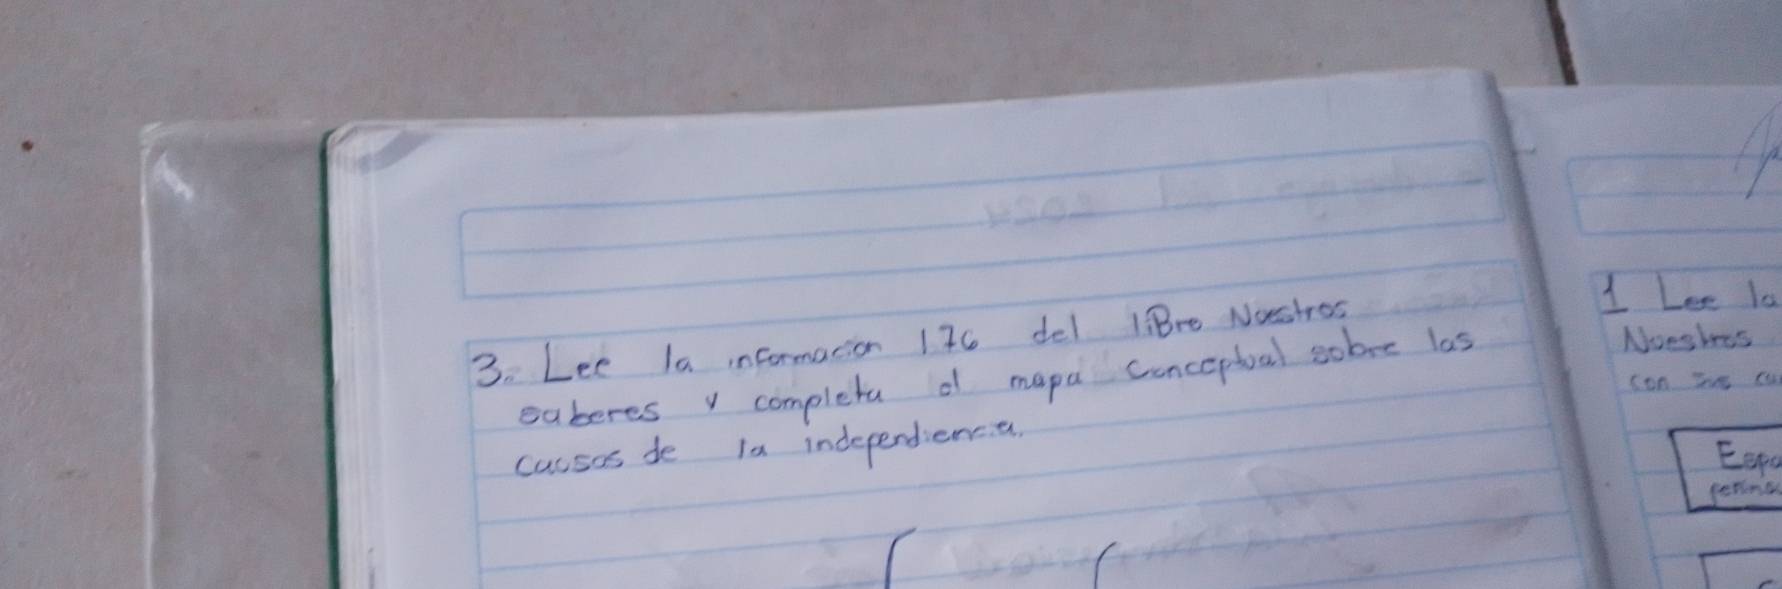 3. Lee la informacion 176 del liBro Nuestros
saberes y completa el mapa conceptual sobre las
causas de la independiencia.
1 Lee la
Nuestros
con